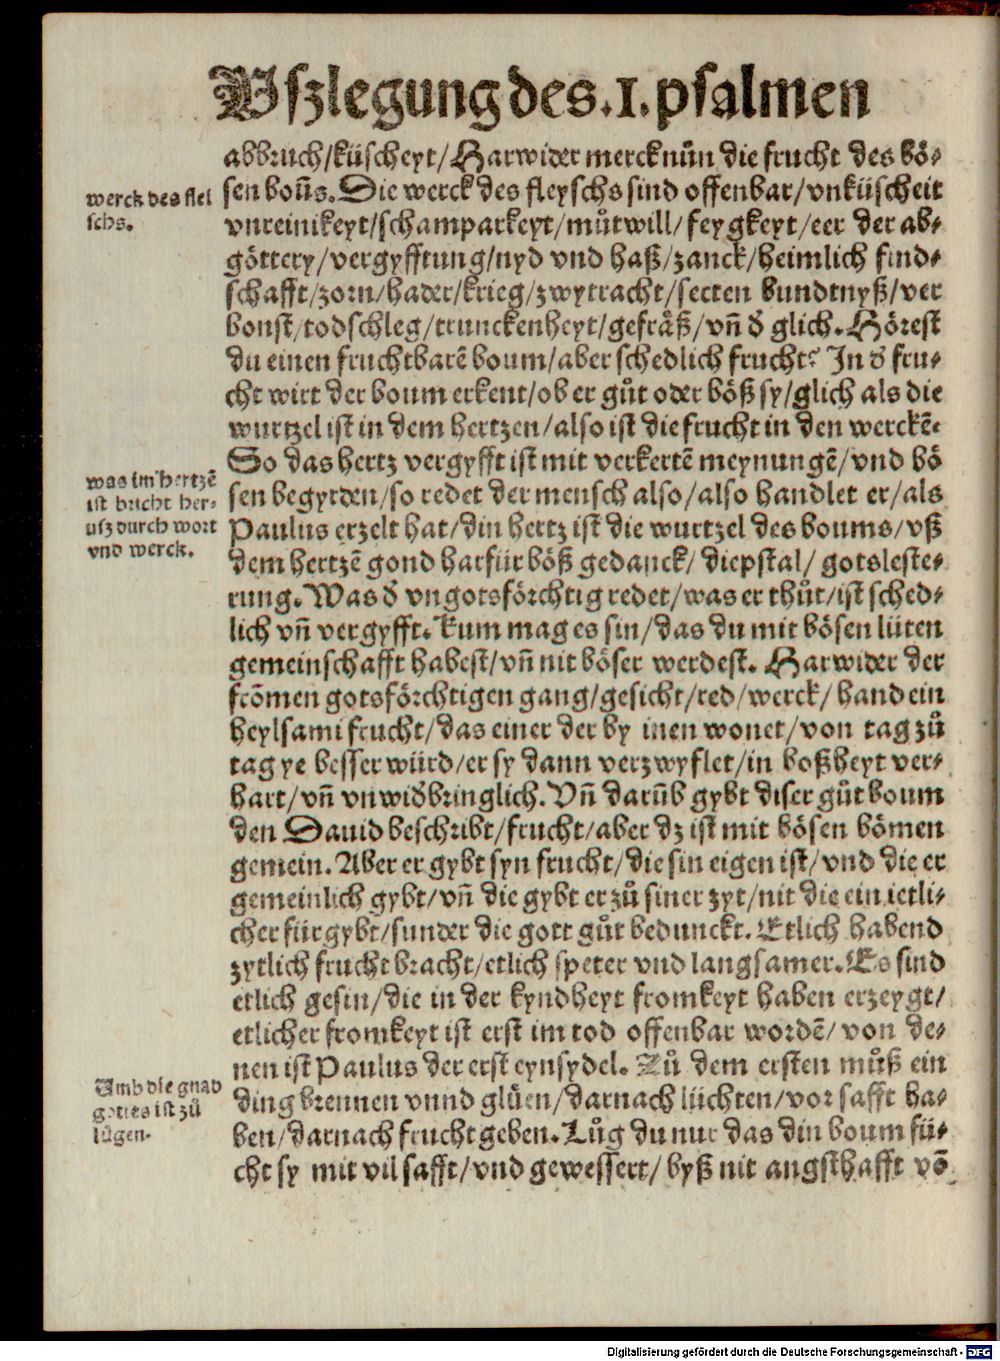 Uszlegung des .1. psalmen
abbruch/küscheyt/Harwider merck nůn die frucht des bö-
werck des flei
schs.
sen boũs. Die werck des fleyschs sind offenbar/vnküscheit
vnreinikeyt/schamparkeyt/můtwill/feygkeyt/eer der ab-
göttery/vergyfftung/nyd vnd haß/zanck/heimlich find-
schafft/zorn/hader/krieg/zwytracht/secten bundtnyß/ver
bonst/todschleg/trunckenheyt/gefräß/vñ d̕ glich. Hörest
du einen fruchtbarẽ boum/aber schedlich frucht? In d̕ fru-
cht wirt der boum erkent/ob er gůt oder böß sy/glich als die
wurtzel ist in dem hertzen/also ist die frucht in den werckẽ.
So das hertz vergyfft ist mit verkertẽ meynungẽ/vnd bö
was im hertzẽ
ist bricht her-
usz durch wort
vnd werck.
sen begyrden/so redet der mensch also/also handlet er/als
Paulus erzelt hat/din hertz ist die wurtzel des boums/vß
dem hertzẽ gond harfür böß gedanck/ diepstal/ gotsleste-
rung. Was d̕ vngotsförchtig redet/was er thůt/ist sched-
lich vñ vergyfft. Kum mag es sin/das du mit bösen lüten
gemeinschafft habest/vñ nit böser werdest. Harwider der
frõmen gotsförchtigen gang/gesicht/red/werck/ hand ein
heylsami frucht/das einer der by inen wonet/von tag zů
tag ye besser würd/er sy dann verzwyflet/in boßheyt ver-
hart/vñ vnwid̕bringlich. Vñ darũb gybt diser gůt boum
den Dauid beschribt/frucht/aber dz ist mit bösen bömen
gemein. Aber er gybt syn frucht/die sin eigen ist/vnd die er
gemeinlich gybt/vñ die gybt er zů siner zyt/nit die ein ietli-
cher fürgybt/sunder die gott gůt bedunckt. Etlich habend
zytlich frucht bracht/etlich speter vnd langsamer. Es sind
etlich gesin/die in der kyndheyt fromkeyt haben erzeygt/
etlicher fromkeyt ist erst im tod offenbar wordẽ/von de-
nen ist Paulus der erst eynsydel. Zů dem ersten můß ein
Umb die gnad
gottes ist zů
lůgen.
ding brennen vnnd glůen/darnach lüchten/vor safft ha-
ben/darnach frucht geben. Lůg du nur das din boum fü-
cht sy mit vil safft/vnd gewessert/byß nit angsthafft võ
Digitalisierung gefördert durch die Deutsche Forschungsgemeinschaft - DFG